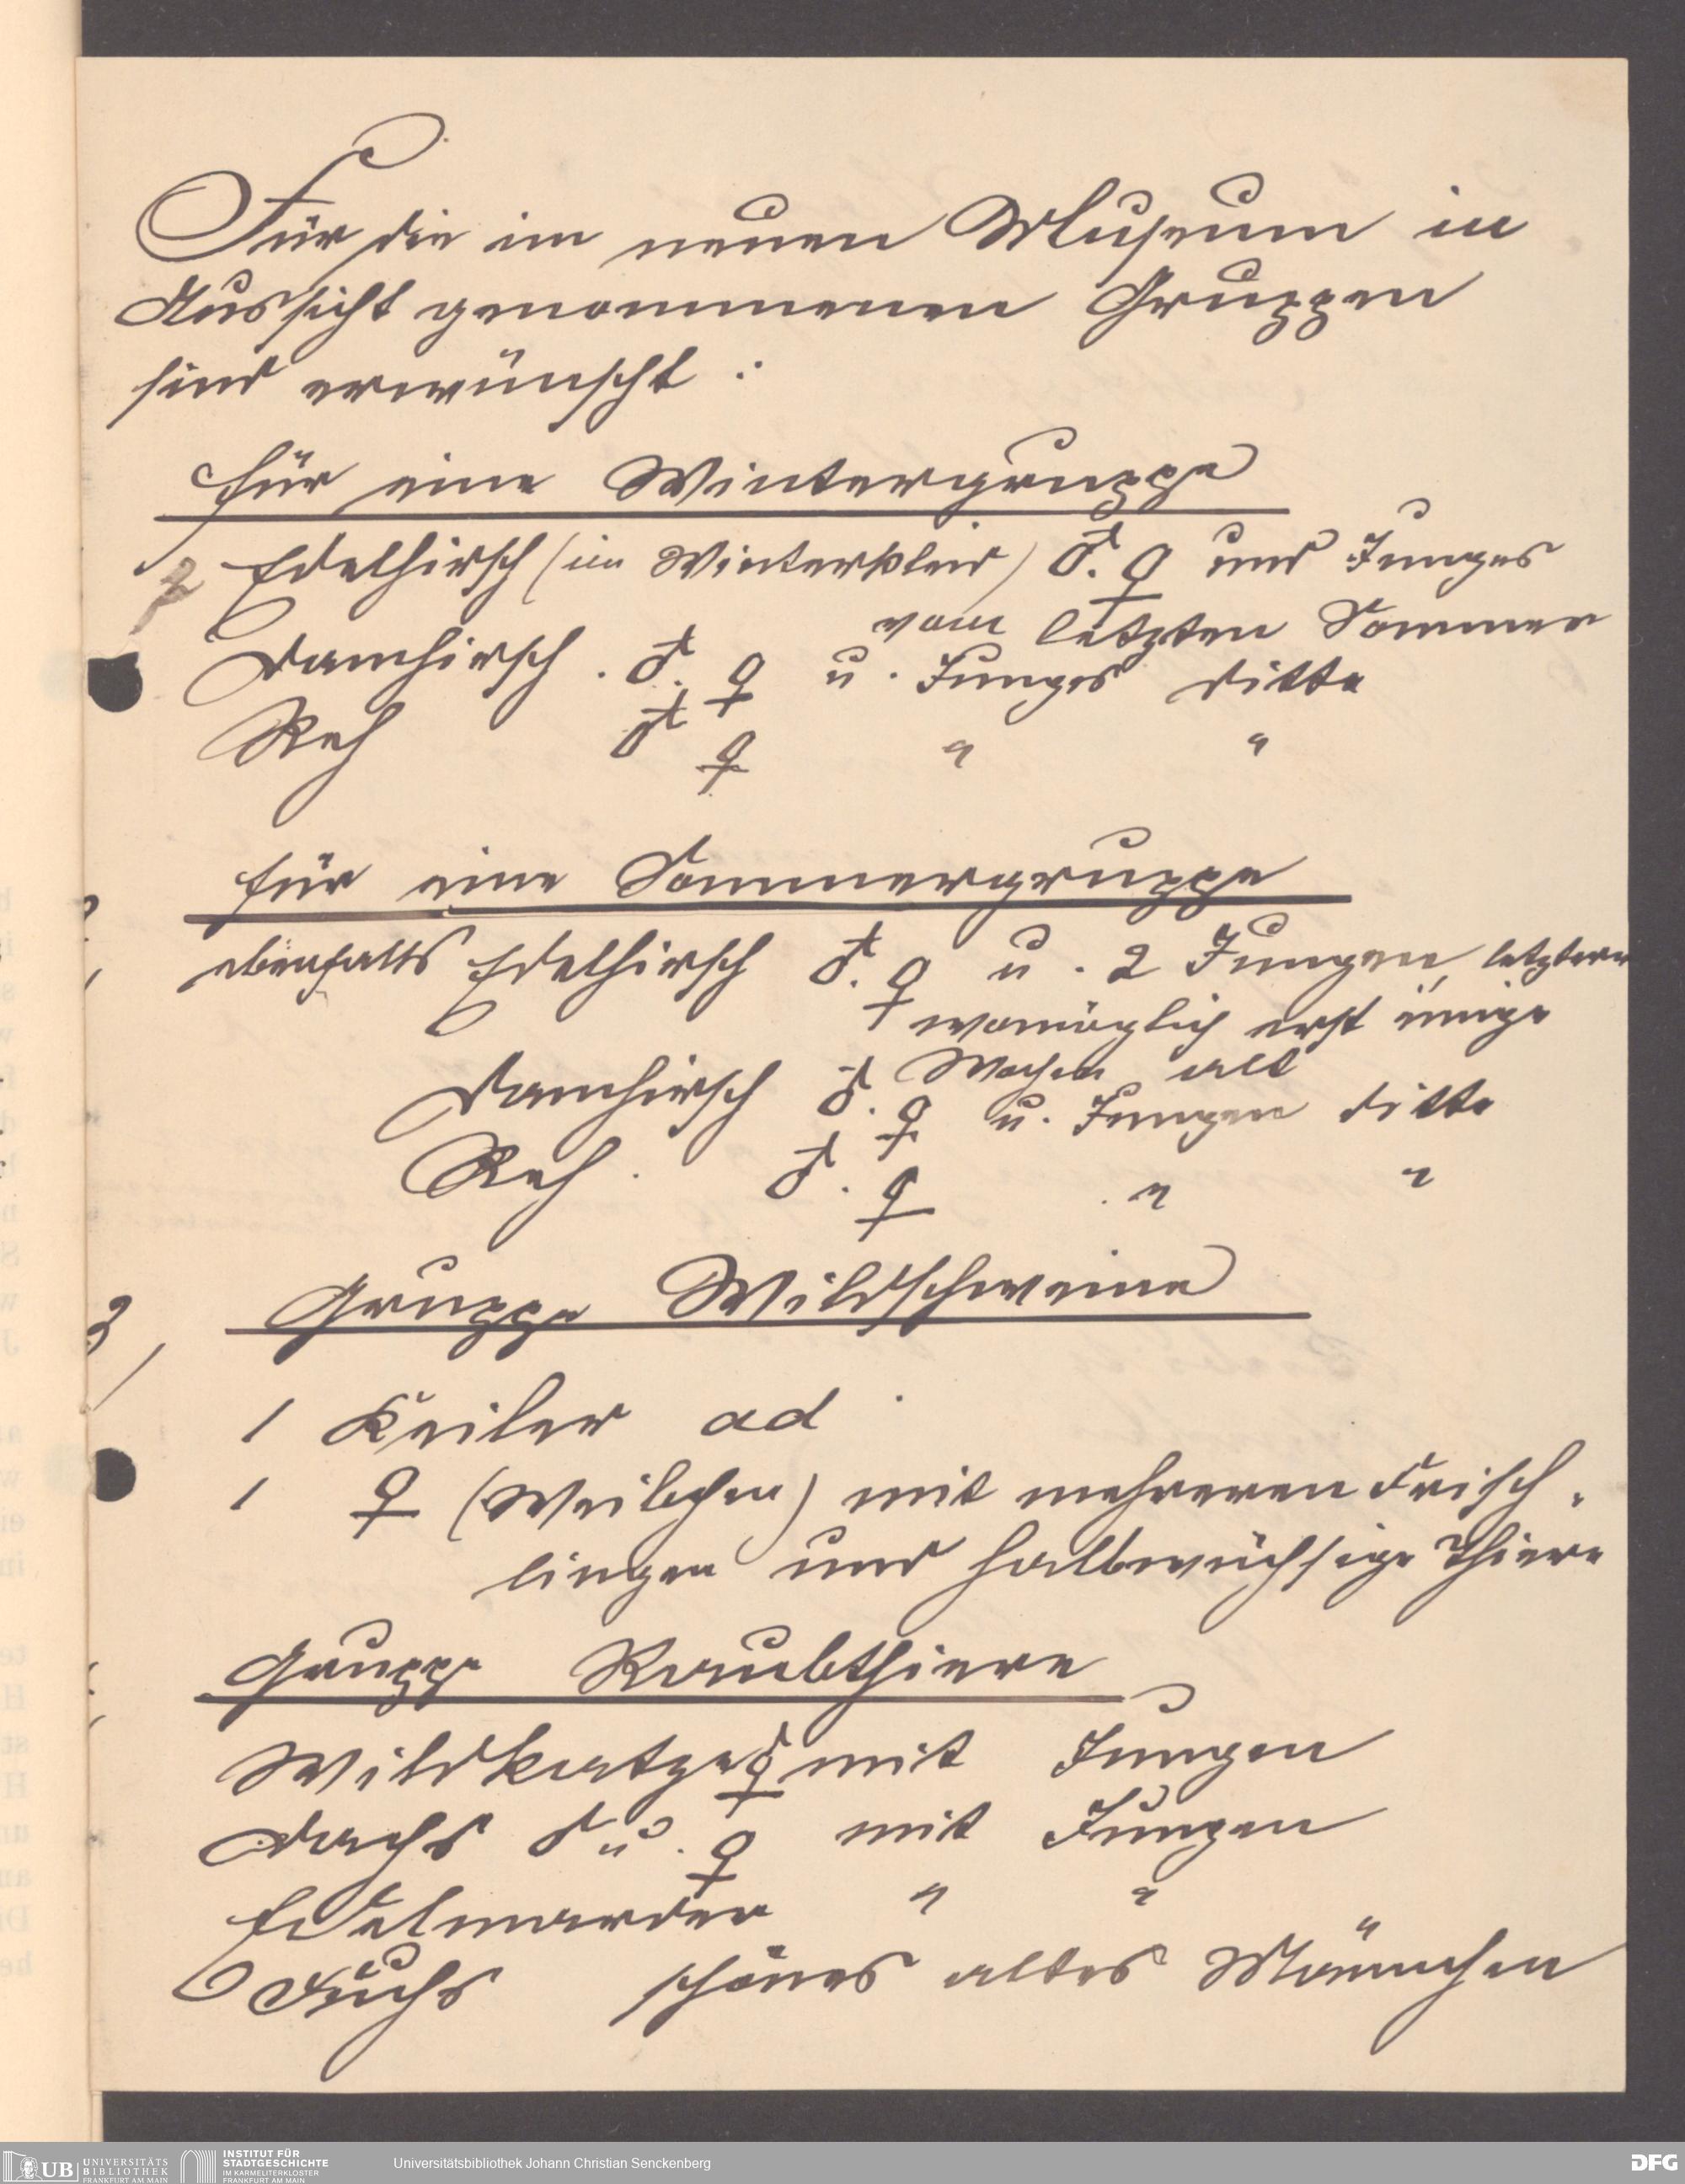 Für die im neuen Museum in
Aussicht genommenen Gruppen
sind erwünscht :
für eine Wintergruppe
Edelhirsch (im Winterkleid) ♂. ♀ und Junges
vom letzten Sommer
Damhirsch . ♂. ♀ u . Junges ditto
Reh ♂ ♀ " "
für eine Sommergruppe
ebenfalls Edelhirsch ♂. ♀ u . 2 Jungen, letztere
womöglich erst einige
Wochen alt
Damhirsch ♂. ♀ u. Jungen ditto
Reh . ♂. ♀ " "
3
Gruppe Wildschweine
1 Keiler ad .
1 ♀ (Weibchen) mit mehreren Frisch-
lingen und halbwüchsige Thiere
Gruppe Raubthiere
Wildkatze ♂ ♀ mit Jungen
Dachs ♂ u. ♀ mit Jungen
Edelmarder " "
Fuchs schönes altes Männchen
UB
UNIVERSITÄTS
BIBLIOTHEK
FRANKFURT AM MAIN
INSTITUT FÜR
STADTGESCHICHTE
IM KARMELITERKLOSTER
FRANKFURT AM MAIN
Universitätsbibliothek Johann Christian Senckenberg
DFG